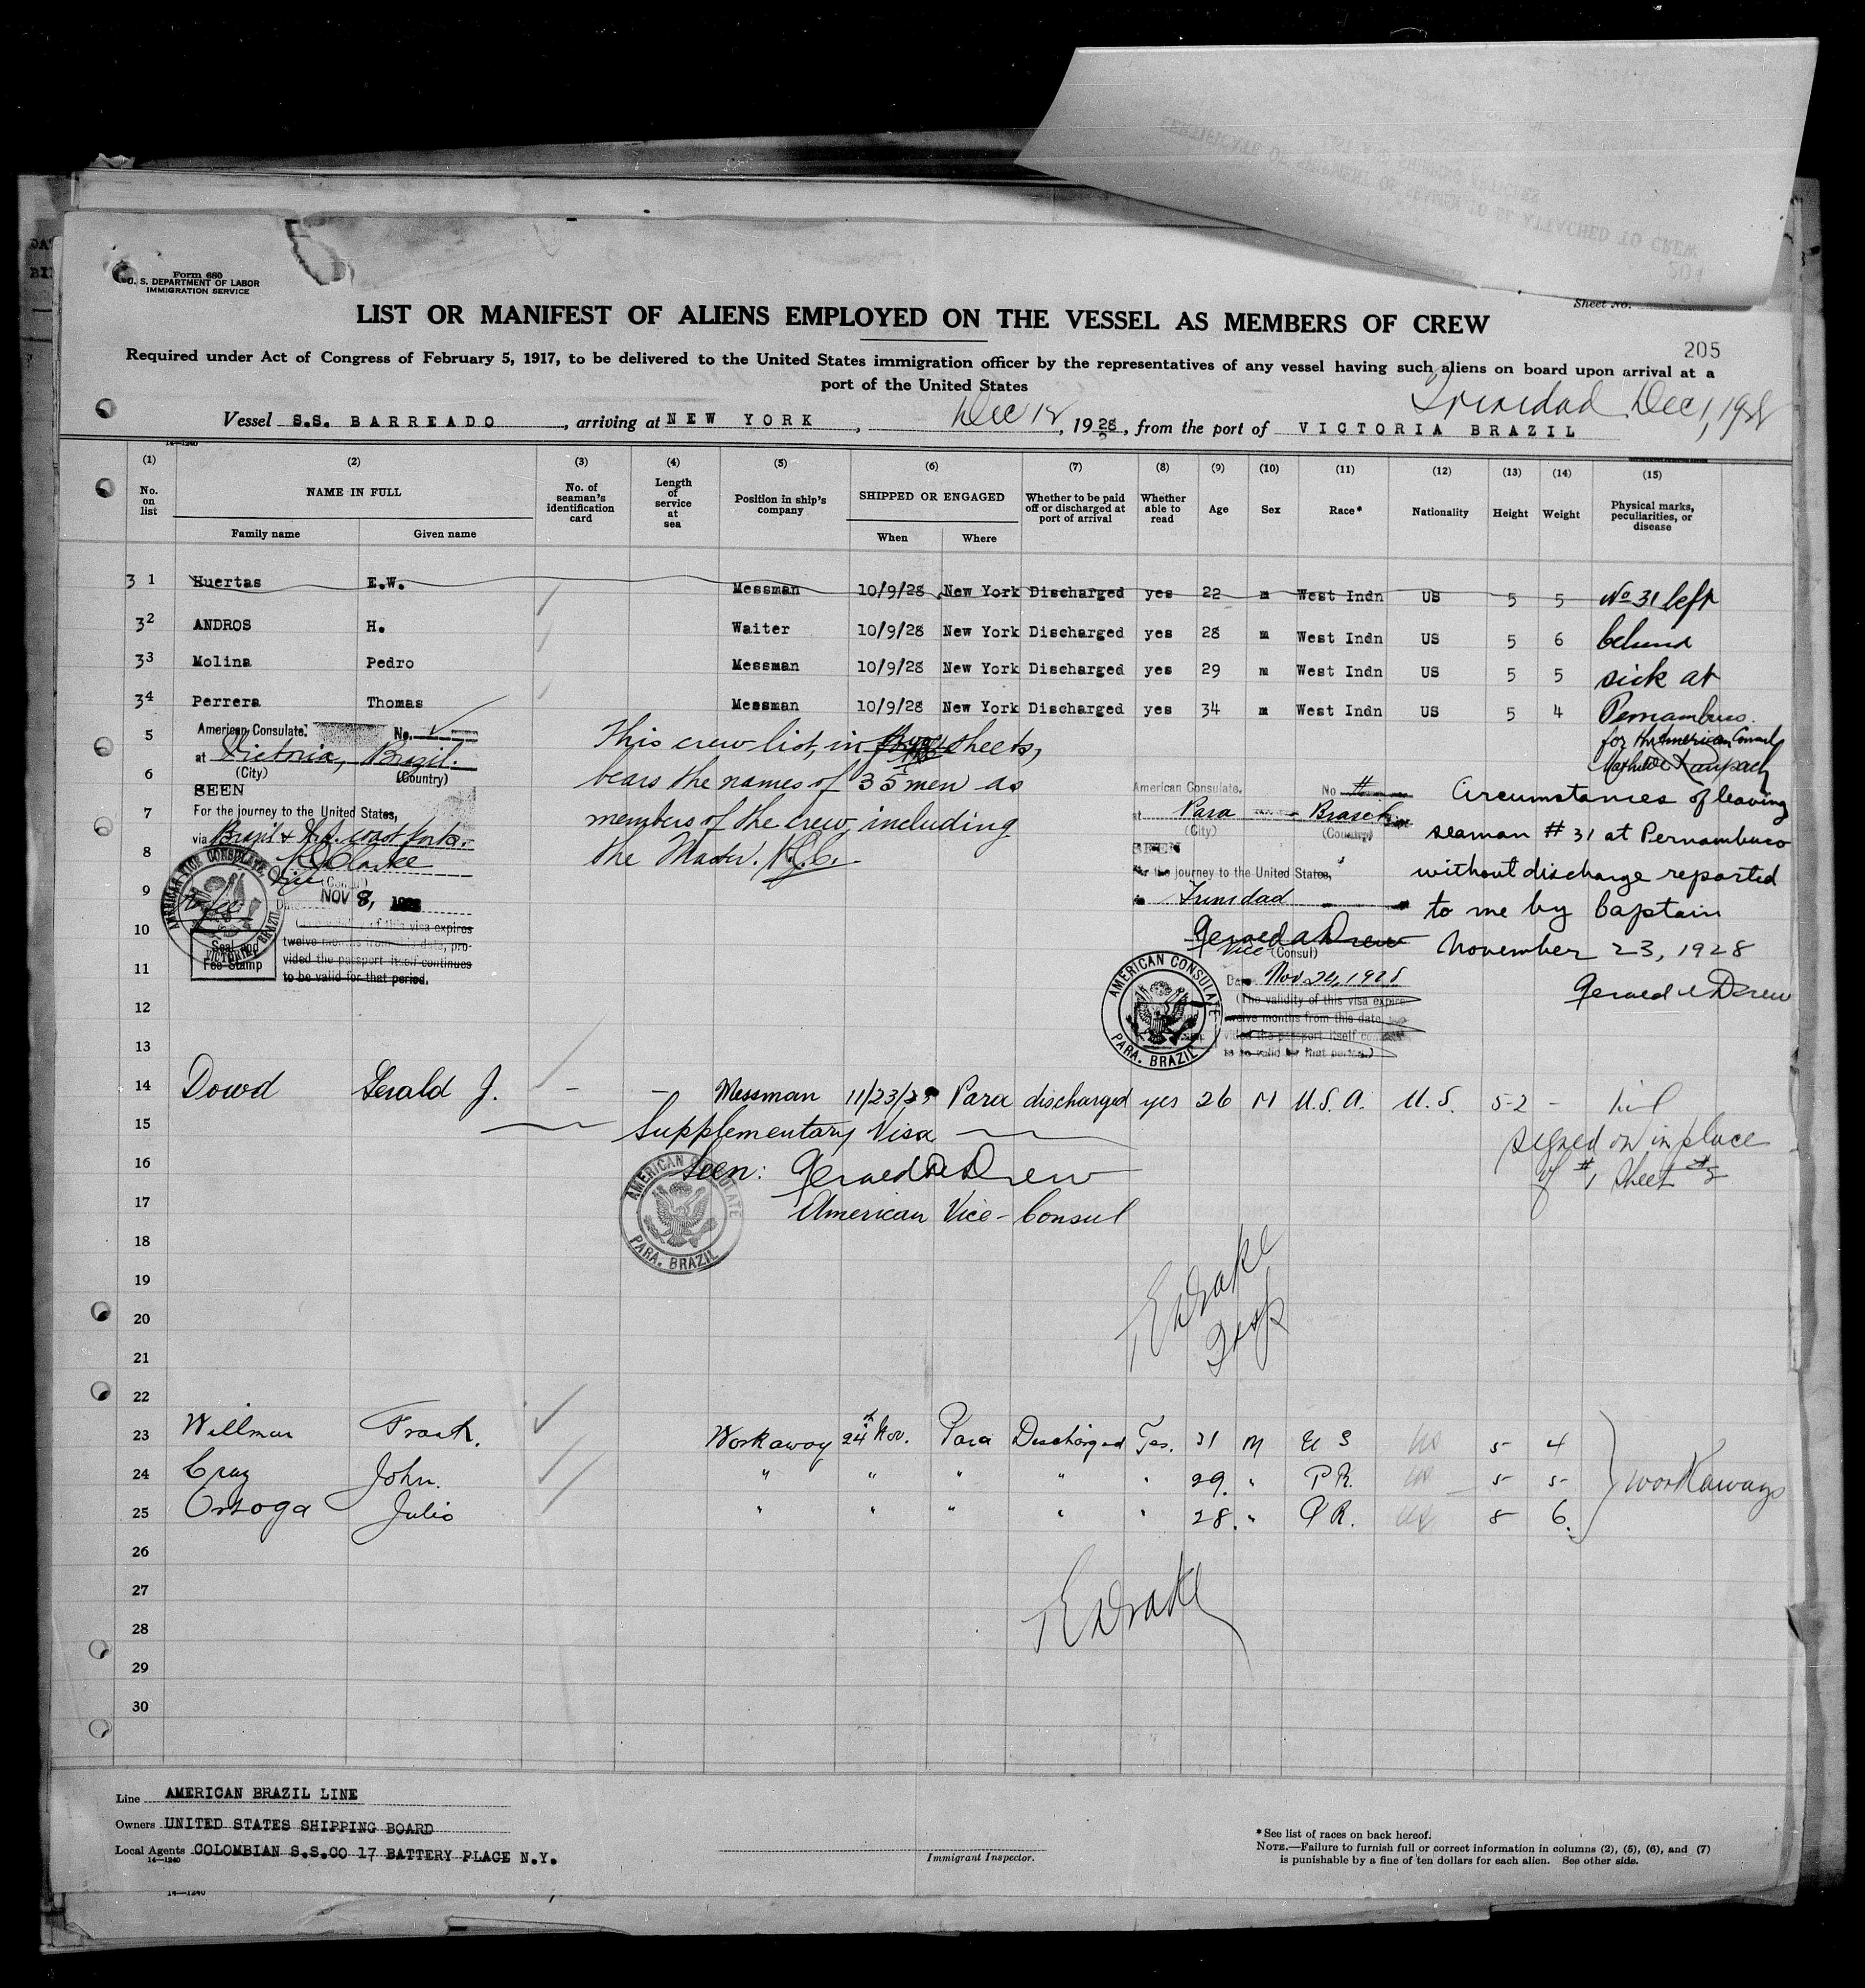 CERTIFICATE OF SHIPMENT OF SEAMEN TO BE ATTACHED TO CREW
LIST AND SHIPPING ARTICLES
204
Form 680
U. S. DEPARTMENT OF LABOR
IMMIGRATION SERVICE
Sheet No.
LIST OR MANIFEST OF ALIENS EMPLOYED ON THE VESSEL AS MEMBERS OF CREW
205
Required under Act of Congress of February 5, 1917, to be delivered to the United States immigration officer by the representatives of any vessel having such aliens on board upon arrival at a
port of the United States
Trinidad Dec 1, 1928
Vessel S.S. BARREADO, arriving at NEW YORK, Dec 12, 1928, from the port of VICTORIA BRAZIL
14—1240
(1) (2) (3) (4) (5) (6) (7) (8) (9) (10) (11) (12) (13) (14) (15)
No. on list NAME IN FULL No. of seaman's identification card Length of service at sea Position in ship's company SHIPPED OR ENGAGED Whether to be paid off or discharged at port of arrival Whether able to read Age Sex Race* Nationality Height Weight Physical marks, peculiarities, or disease
Family name Given name When Where
31 Huertas E.W. Messman 10/9/28 New York Discharged yes 22 m West Indn US 5 5 No 31 left
32 ANDROS H. Waiter 10/9/28 New York Discharged yes 28 m West Indn US 5 6 behind
33 Molina Pedro Messman 10/9/28 New York Discharged yes 29 m West Indn US 5 5 sick at
34 Perrera Thomas Messman 10/9/28 New York Discharged yes 34 m West Indn US 5 4 Pernambuco.
for the American Consul
5
6
7
8
9
10
11
12
13
American Consulate. No.
at Victoria, Brazil.
(City) (Country)
SEEN
For the journey to the United States,
via Brazil & coast ports.
Clarke
Vice (Consul)
NOV 8, 1928
AMERICAN VICE CONSULATE, VICTORIA, BRAZIL
no fee
Seal and
Fee Stamp
(The validity of this visa expires
twelve months from this date, pro-
vided the passport itself continues
to be valid for that period.
This crew list, in sheets,
bears the names of 35 men as
members of the crew, including
the Master.
American Consulate. No
at Para Brazil
(City) (Country)
SEEN
For the journey to the United States,
Trinidad
Gerald A Drew
Vice (Consul)
Date Nov 24, 1928
(The validity of this visa expires
twelve months from this date,
vided the passport itself
to be valid for that period.)
AMERICAN CONSULATE
PARA. BRAZIL
Circumstances of leaving
seaman # 31 at Pernambuco
without discharge reported
to me by Captain
November 23, 1928
Gerald A Drew
14 Dowd Gerald J. - - Messman 11/23/28 Para discharged yes 26 M U.S.A. U.S. 5-2 - nil
15 Supplementary Visa
signed on in place
of #1 Sheet #2
16 Seen: Gerald A Drew
17 American Vice-Consul
AMERICAN CONSULATE
PARA. BRAZIL
18
19
20
21
22
E Drake
Insp
23 Willman Frank. Workaway 24th Nov. Para Discharged Yes. 31 M U S US 5 4
24 Cruz John. " " " " " 29. " P R. US 5 5 workaways
25 Ortoga Julio " " " " " 28. " P R. US 5 6.
26
27
E Drake
28
29
30
Line AMERICAN BRAZIL LINE
Owners UNITED STATES SHIPPING BOARD
Local Agents COLOMBIAN S.S.CO 17 BATTERY PLACE N.Y.
14—1240
Immigrant Inspector.
*See list of races on back hereof.
NOTE.—Failure to furnish full or correct information in columns (2), (5), (6), and (7)
is punishable by a fine of ten dollars for each alien. See other side.
14—1240